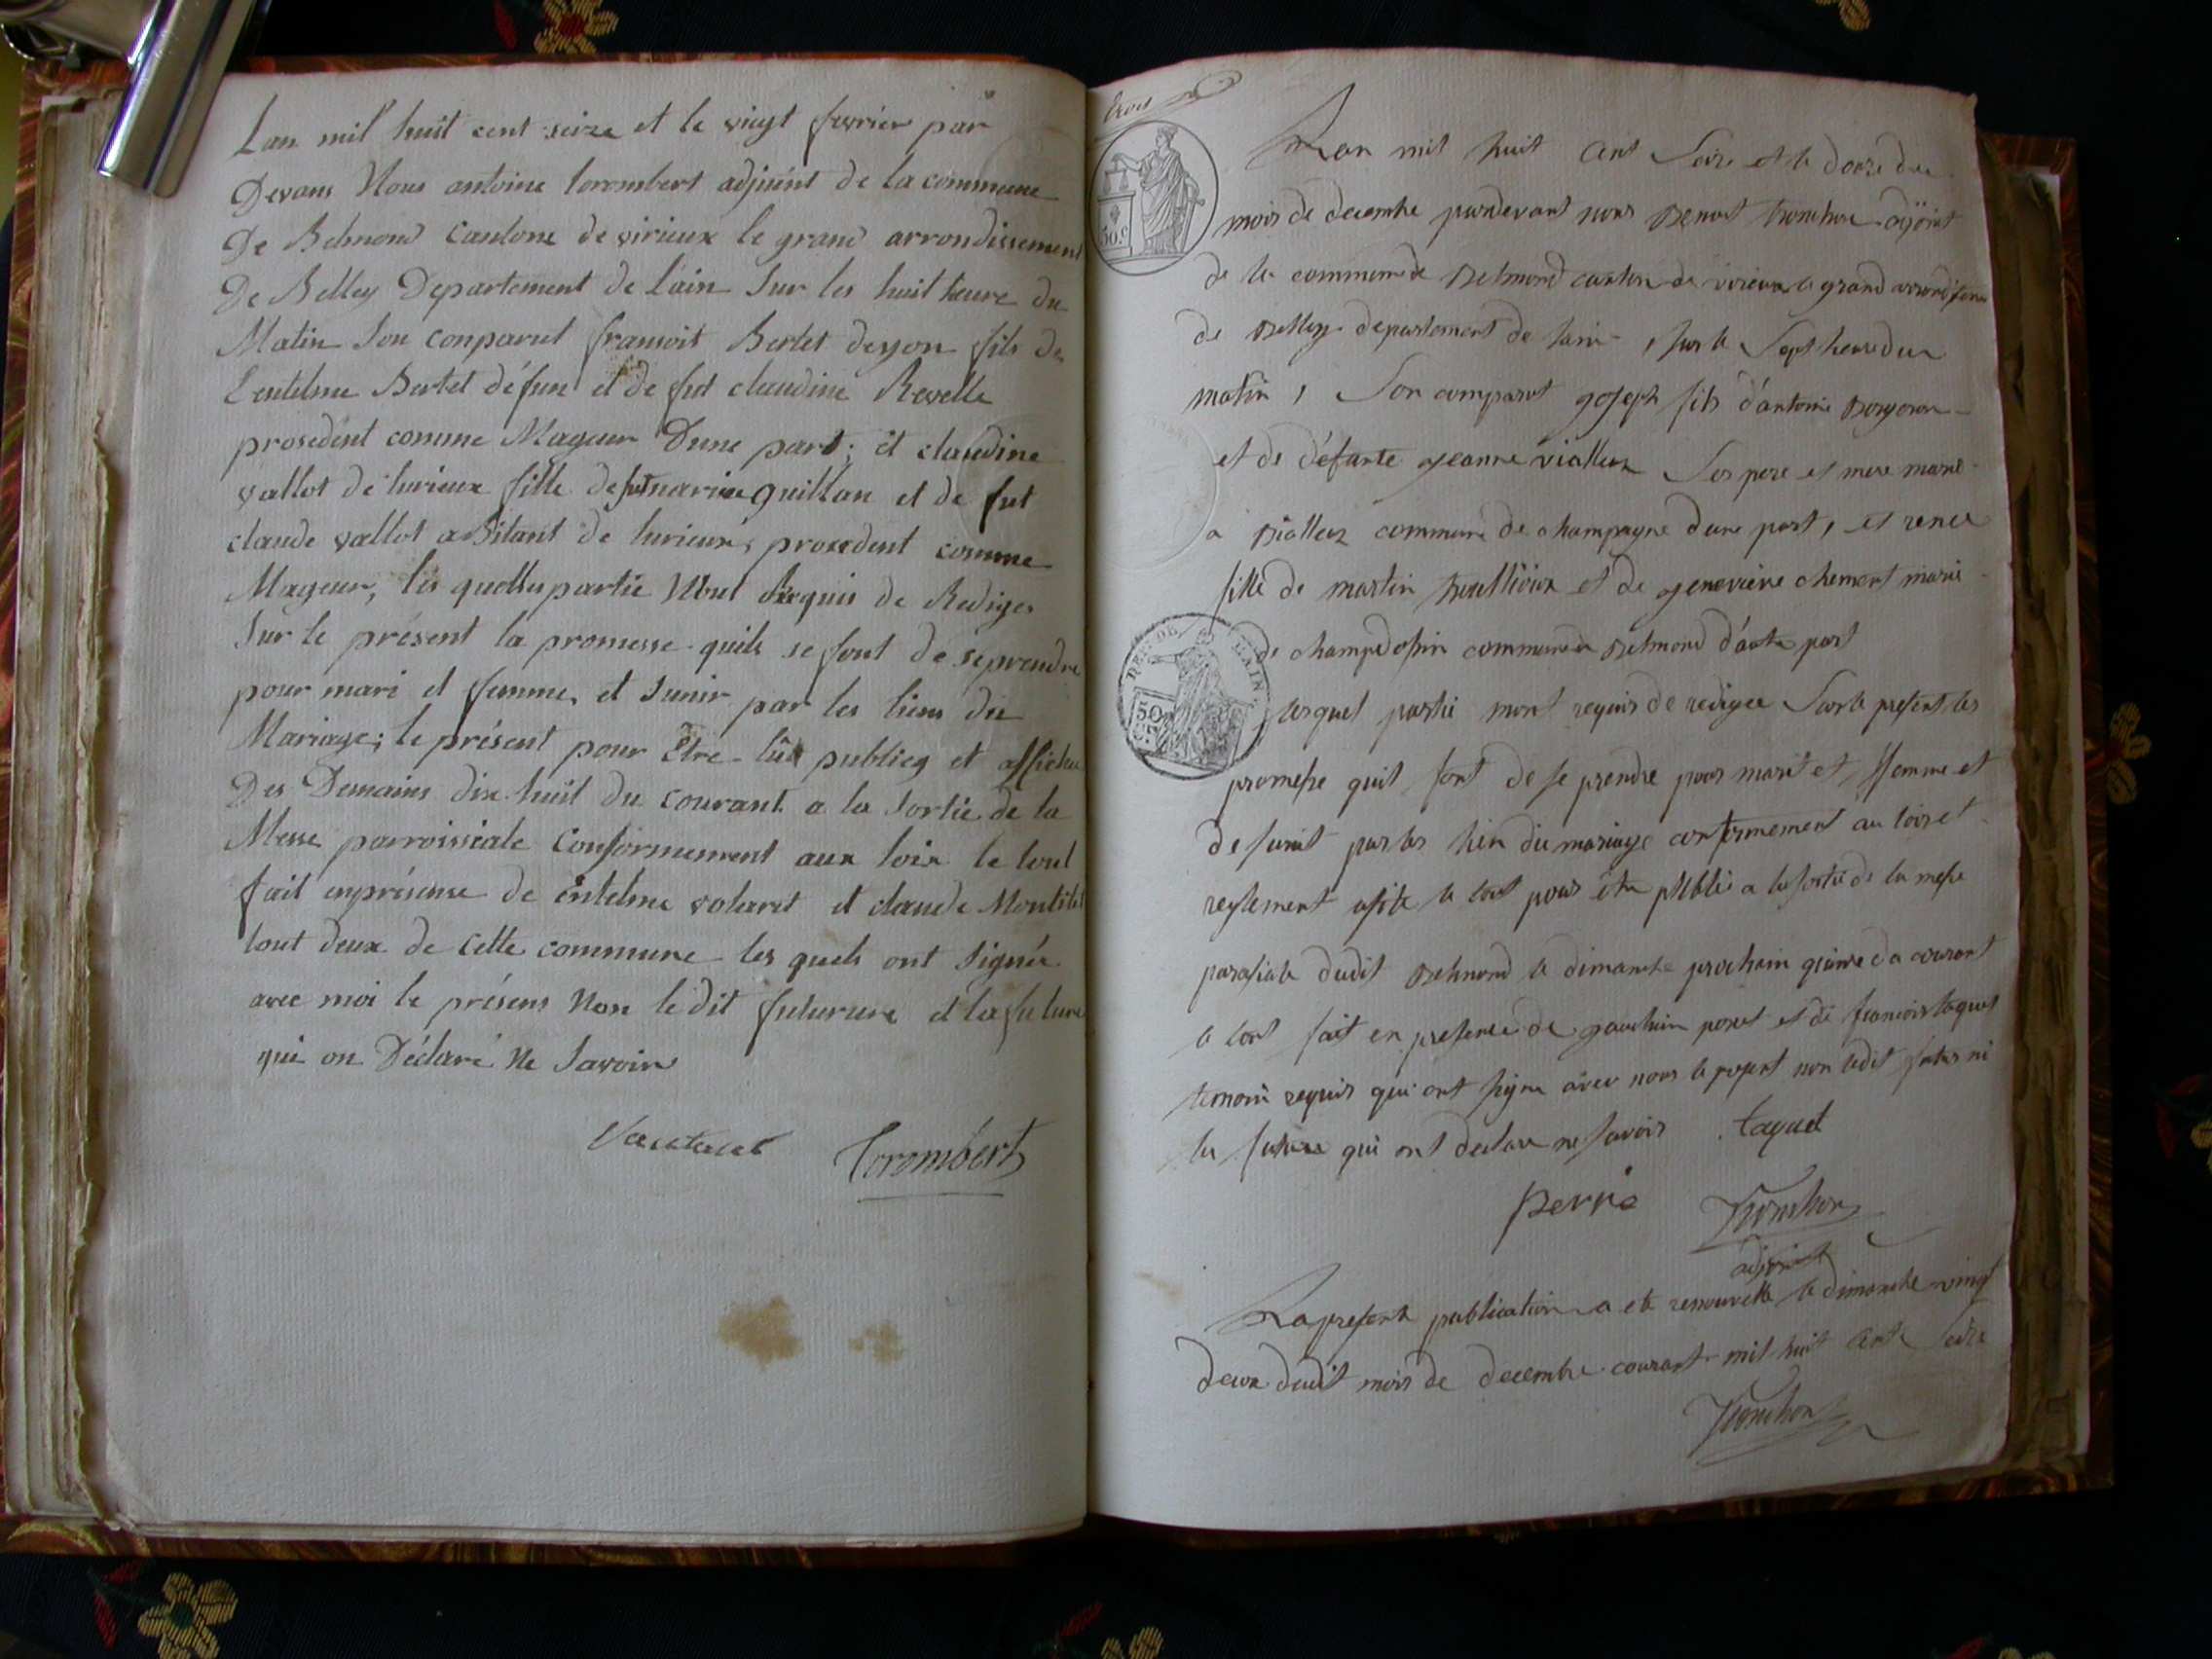 Lan mil huit cent seize et le vingt fevrier par
Devans Nous antoine torombert adjoint de la commune
De Belmond Cantone de virieux le grand arrondissement
De Belley Departement de Lain Sur les huit heure du
Matin Son conparut fransoit Bertet deyon fils de
Lentelme Bertet défun et de fut claudine Revelle
prosedent comme Mageur Dune part; et claudine
vallot de lurieux fille de fut marie guillon et de fut
claude vallot abitant de lurieux, prosedent comme
Mageur, les quelles partie Nout Requis de Rediger
Sur le présent la promesse quils se font de seprendre
pour mari et femme, et Sunir par les liens du
Mariage; le présent pour Etre lû publieg et affiche
Des Demains dix huit du courant a la Sortie de la
Messe parroissiale Conformement aux loix le tout
fait enprésense de entelme volaret et claude Montilet
tout deux de Cette commune les quels ont Signée
avec moi le présens Non le dit futurure et la future
qui on Déclaré Ne Savoir
Torombert
trois
Lan mil huit cent Seize et le douze du
mois de decembre pardevant nous Benoit tronchon adjoint
de la commune de Belmond canton de virieux le grand
de Belley departement de lain, sur le Sept heure du
matin, Son comparut joseph fils d'antoine
et de défunte jeanne vialleux Ses pere et mere marié
a commune de champagne dune part, et
fille de martin et de genevieve chement marié
de champdossin commune de Belmond d'autre part
lesquel partie mont requis de redigee Sur le present les
promesse quil font de se prendre pour marit et ffemme et
de sunit par les lien du mariage conformement au loix et
reglement le tout pour être publié a la sortie de la messe
parasiale dudit Belmond le dimanche prochain du courant
le tout fait en presence de et de francois taquet
temoin requis qui ont signe avec nous le present non ledit futur ni
la future qui ont declare ne savoir taquet
perrie
Tronchon
adjoint
La presente publication a ete renouvelle le dimanche vingt
deux dudit mois de decembre courant mil huit cent Seize
Tronchon
DEP. DE L'AIN
50
50.c